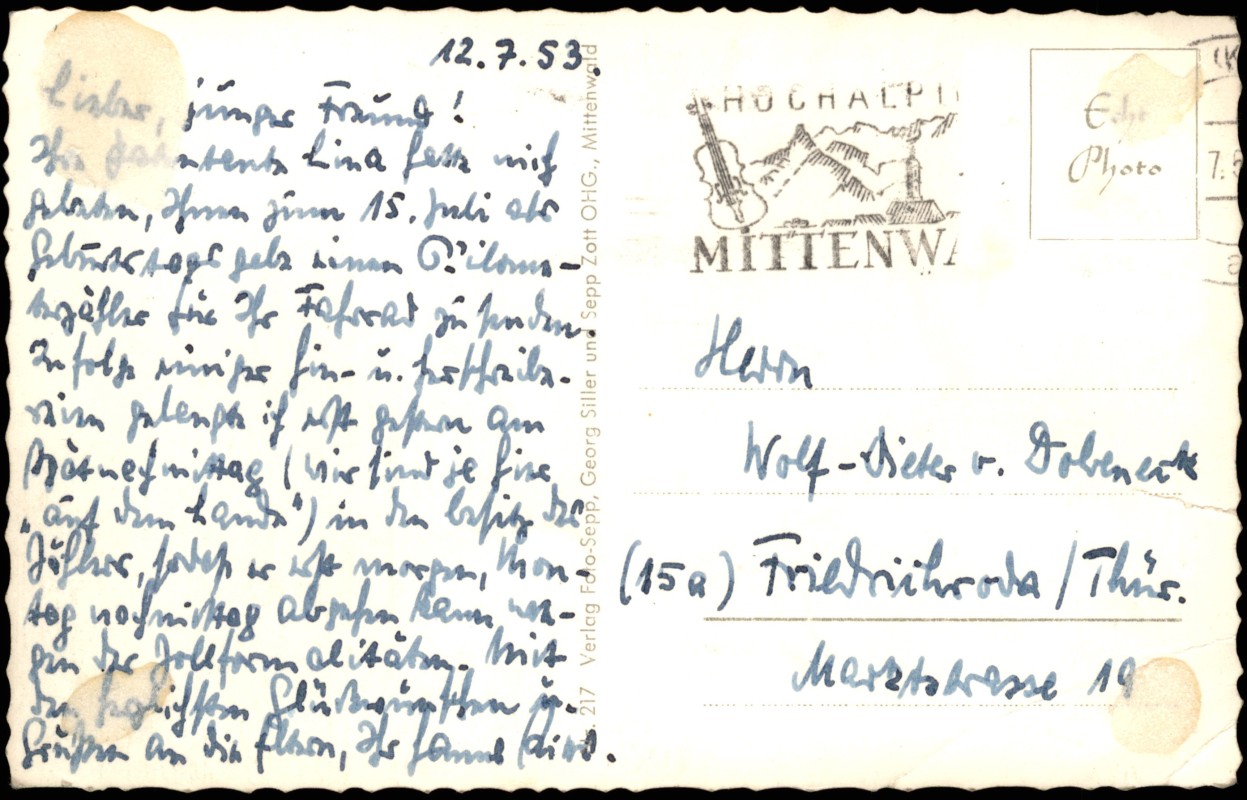 12.7.53.
Lieber, junger Freund!
Ihre Patentante Lina hatte mich
gebeten, Ihnen zum 15. Juli als
Geburtstagsgabe einen Kilome-
terzähler für Ihr Fahrrad zu senden.
Infolge einiger Hin- u. Herschreibe-
reien gelangte ich erst gestern am
Spätnachmittag (wir sind ja hier
„auf dem Lande“) in den Besitz des
Zählers, sodaß er erst morgen, Mon-
tag nachmittag abgehen kann, we-
gen der Zollformalitäten. Mit
den herzlichsten Glückwünschen u.
Grüßen an die Eltern, Ihr
Nr. 217 Verlag Foto-Sepp, Georg Siller und Sepp Zott OHG., Mittenwald
HOCHALPI
MITTENWA
Echt
Photo
Herrn
Wolf-Dieter v. Dobeneck
(15a) Friedrichroda/Thür.
Marktstrasse 19